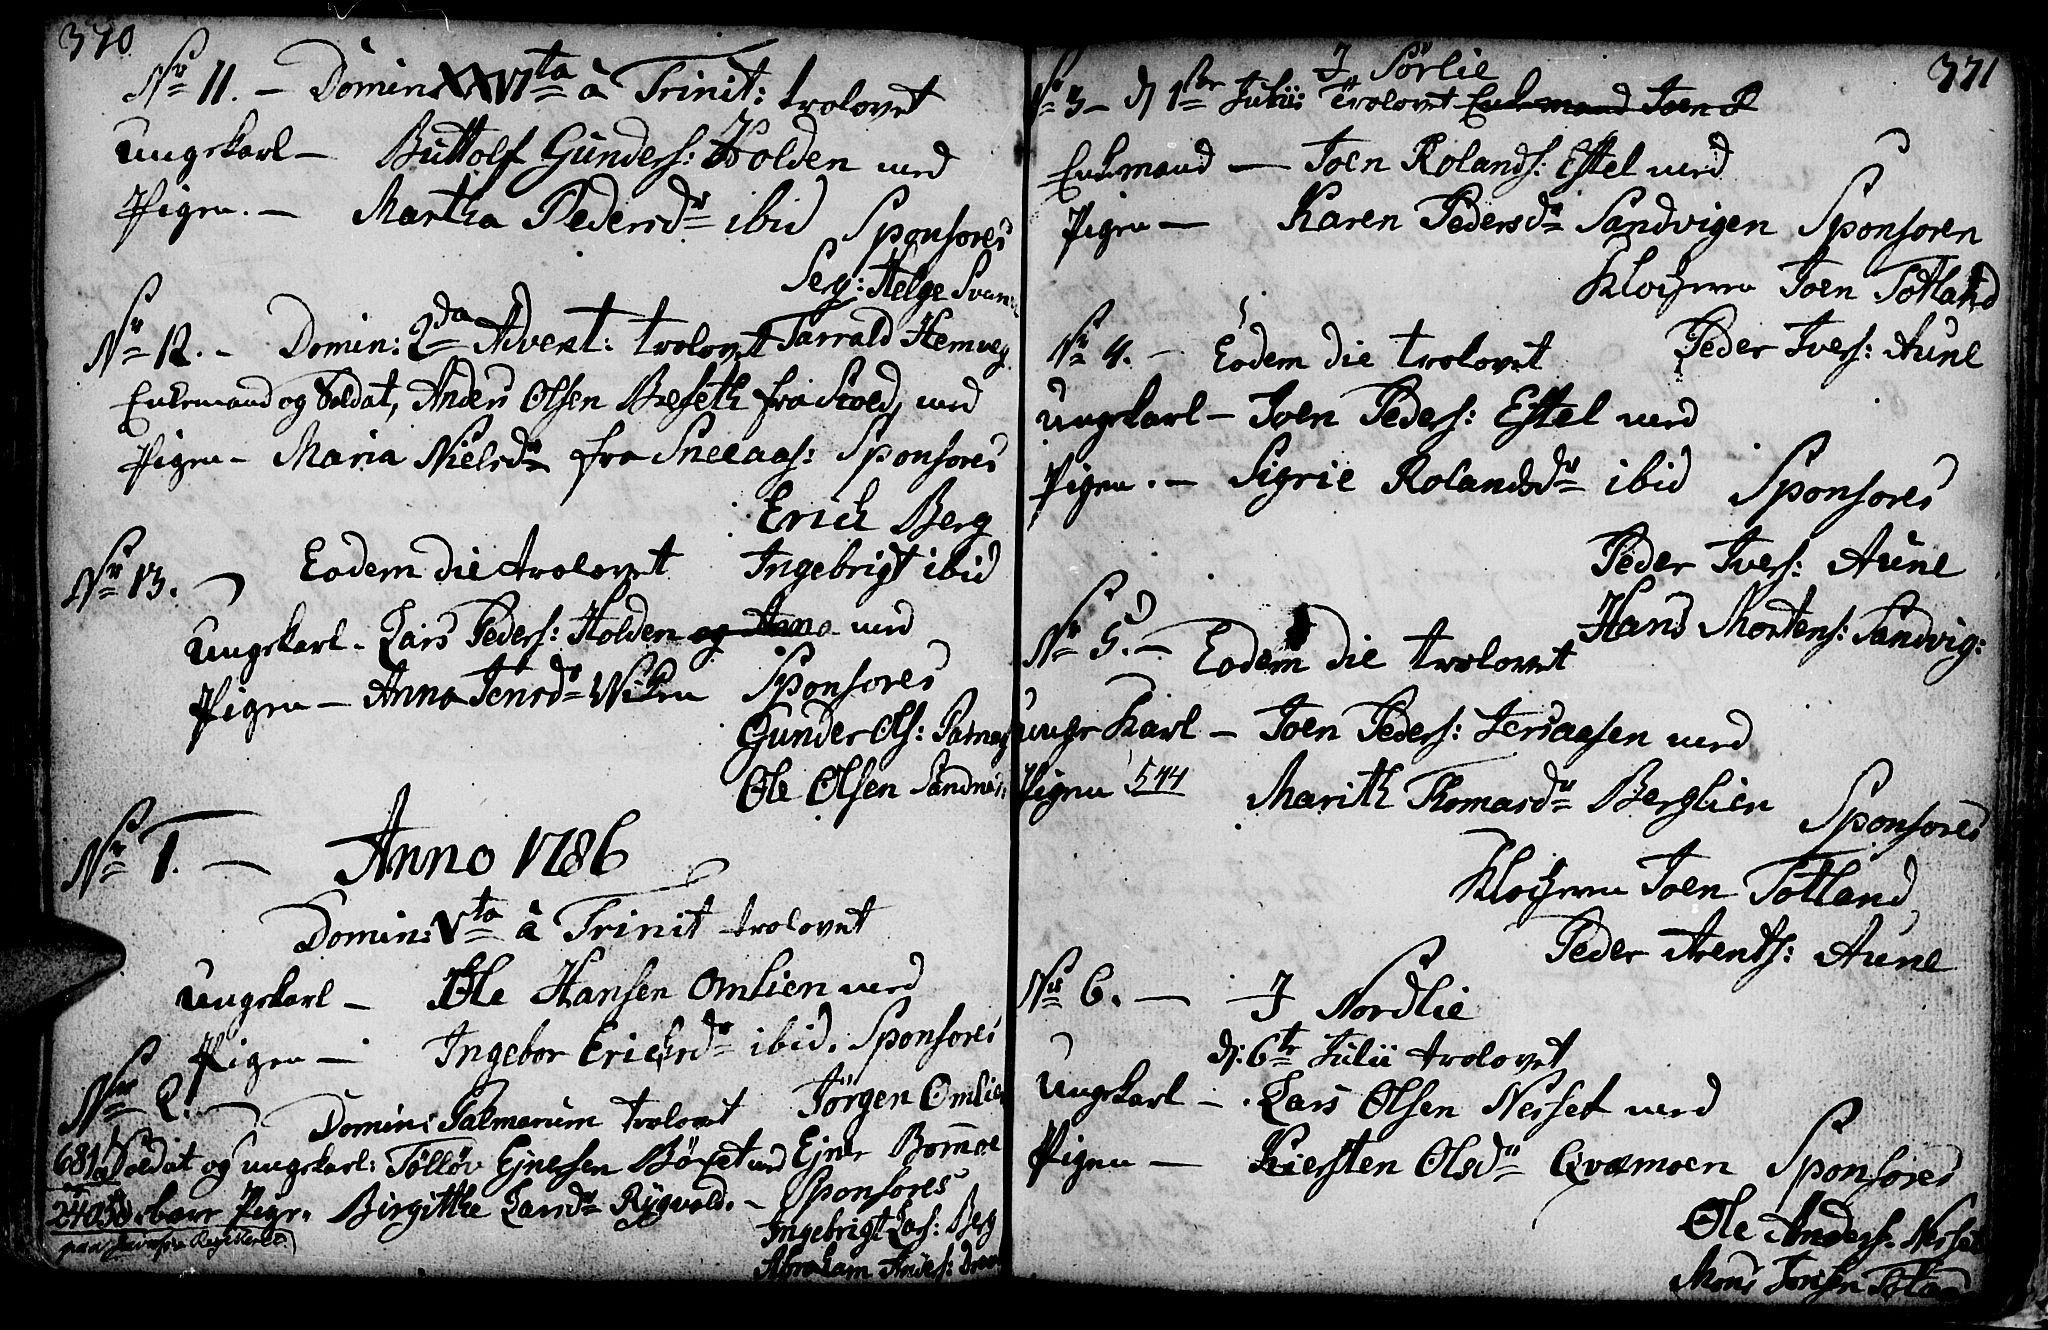 370
No 11. – Domin XXVIta à Trinit: trolovet
Ungekarl – Büttolf Gunders: Holden med
Pigen. – Martha Pedersdr ibid Sponsores
Serg: Helge Svan
No 12. – Domin: 2da Advent: trolovet Tarrald Hemveg
Enkemand og Soldat, Anders Olsen Beseth fra Scoed, med
Pigen – Maria Nielsdr fra Sneaas: Sponsores
Erich Berg
No 13. – Eodem die trolovet Ingebrigt ibid
Ungekarl – Lars Peders: Holden og Anna med
Pigen – Anna Jensdr Wiken Sponsores
Gunder Ols:
Ole Olsen Sandnes
No 1. – Anno 1786
Domin: Vta à Trinit trolovet
Ungekarl – Ole Hansen Omlien med
Pigen – Ingebor Erichsdr ibid. Sponsores
Jørgen Omlien
No 2. – Domin: Palmarum trolovet
Soldat og ungekarl: Tølløv Ejnersen med Ejner
Pige. Birgitthe Larsdr Rygvold. – Sponsores
Ingebrigt Lars: Berg
Abraham Anders:
371
I Sörlie
No 3 – d 1ste Julii Trolovet Enkemand Joen R
Enkemand – Joen Rolands: Estel med
Pigen – Karen Pedersdr Sandvigen Sponsoren
Klockeren Joen Totland
Peder Ivers: Aune
No 4. – Eodem die trolovet
Ungekarl – Joen Peders: Estel med
Pigen. – Sigrie Rolandsdr ibid Sponsores
Peder Ivers: Aune
Hans Mortens: Sandvig:
No 5. – Eodem die trolovet
Unge Karl – Joen Peders: Jersaasen med
Pigen 544 Marith Thomasdr Berglien Sponsores
Klockeren Joen Totland
Peder Arents: Aune
No 6. – I Nordlie
d: 6te Julii trolovet
Ungekarl – Lars Olsen Nerset med
Pigen – Kiersten Olsdr Qvæmoen Sponsores
Ole Anders: Nerset
Mons Jensen